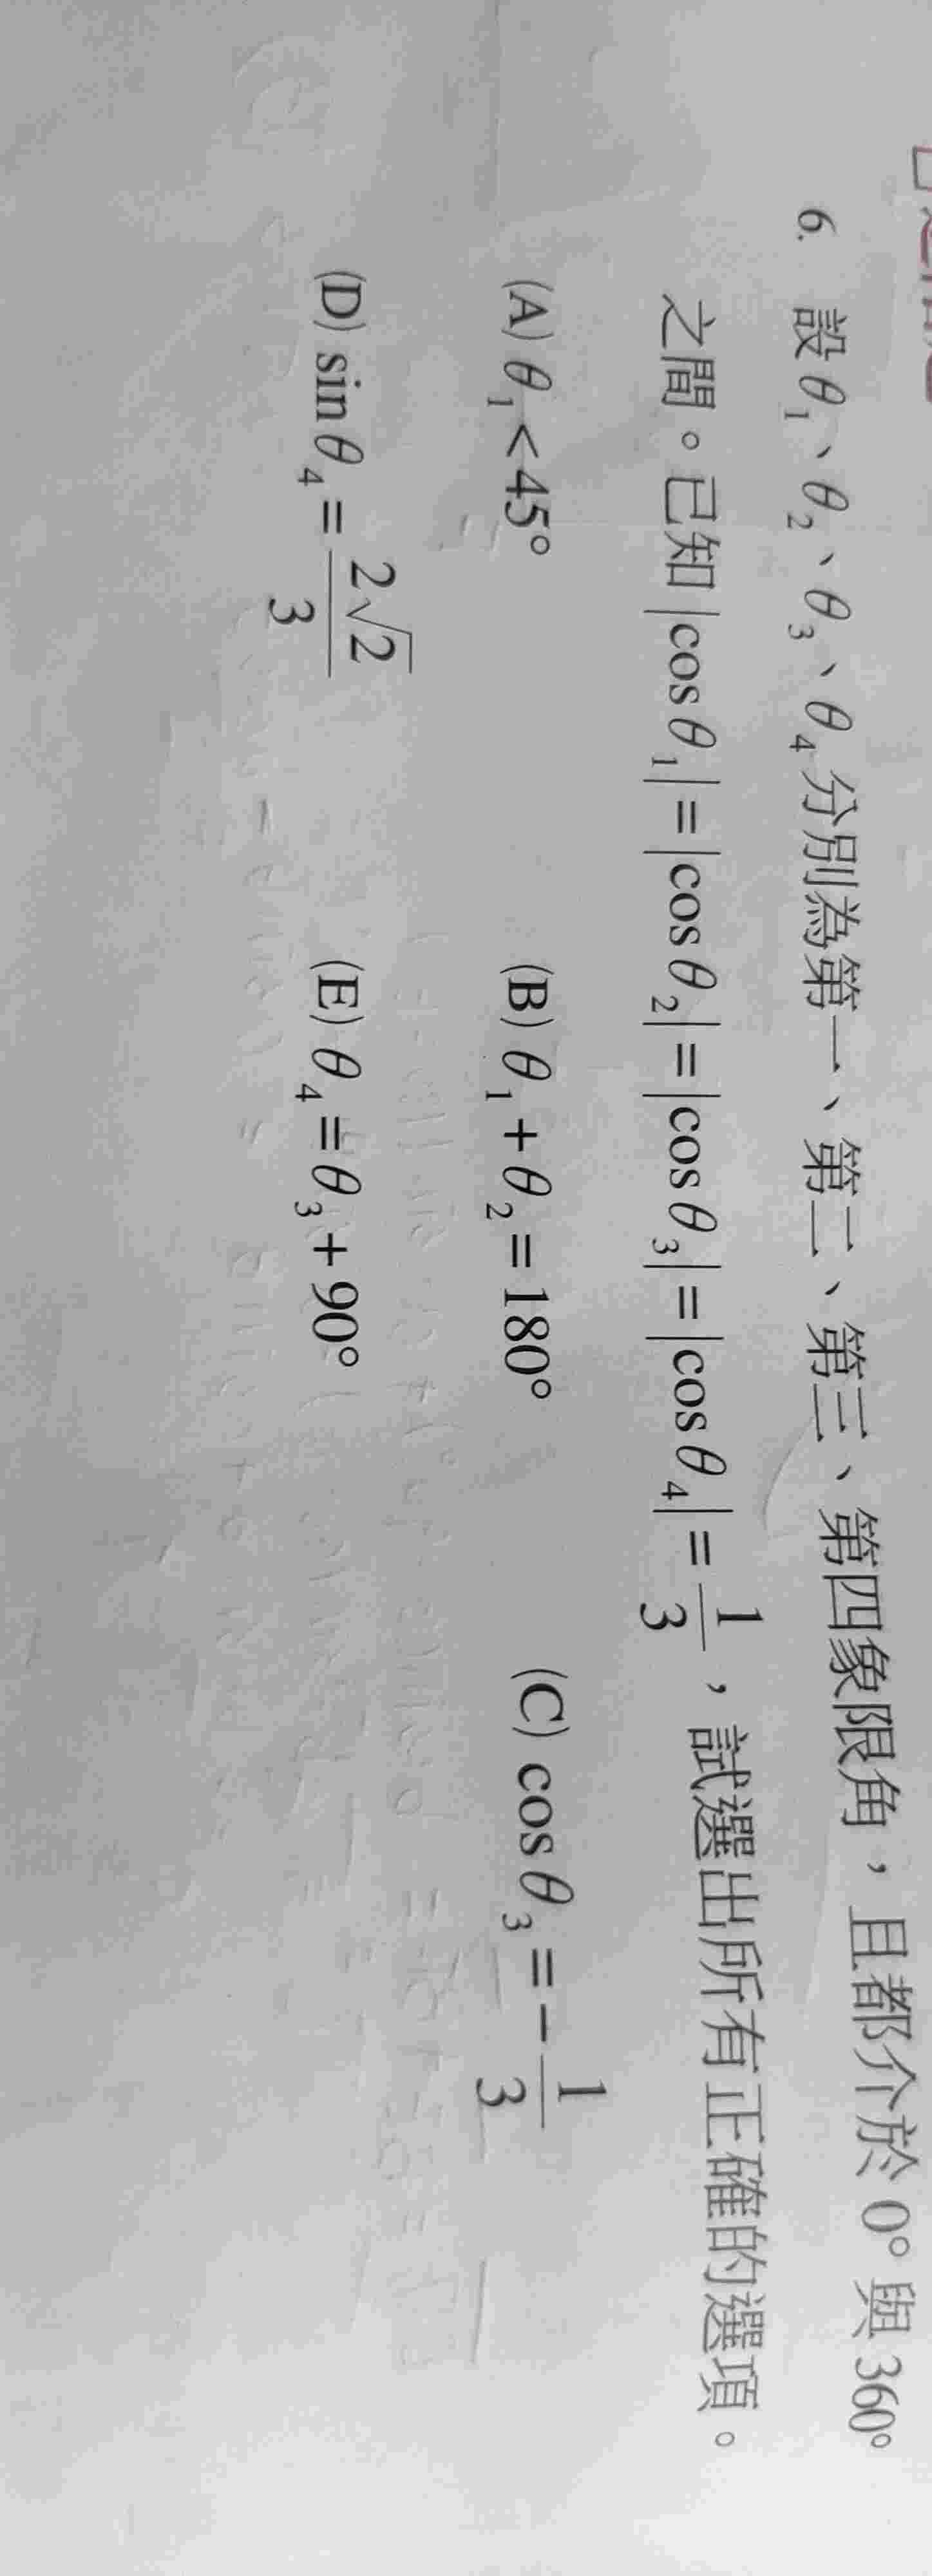 6. 設θ₁、θ₂、θ₃、θ₄分別為第一、第二、第三、第四象限角，且都介於0°與360°
之間。已知|cosθ₁|=|cosθ₂|=|cosθ₃|=|cosθ₄|=1/3，試選出所有正確的選項。
(A) θ₁<45° (B) θ₁+θ₂=180° (C) cosθ₃=-1/3
(D) sinθ₄=2√2/3 (E) θ₄=θ₃+90°